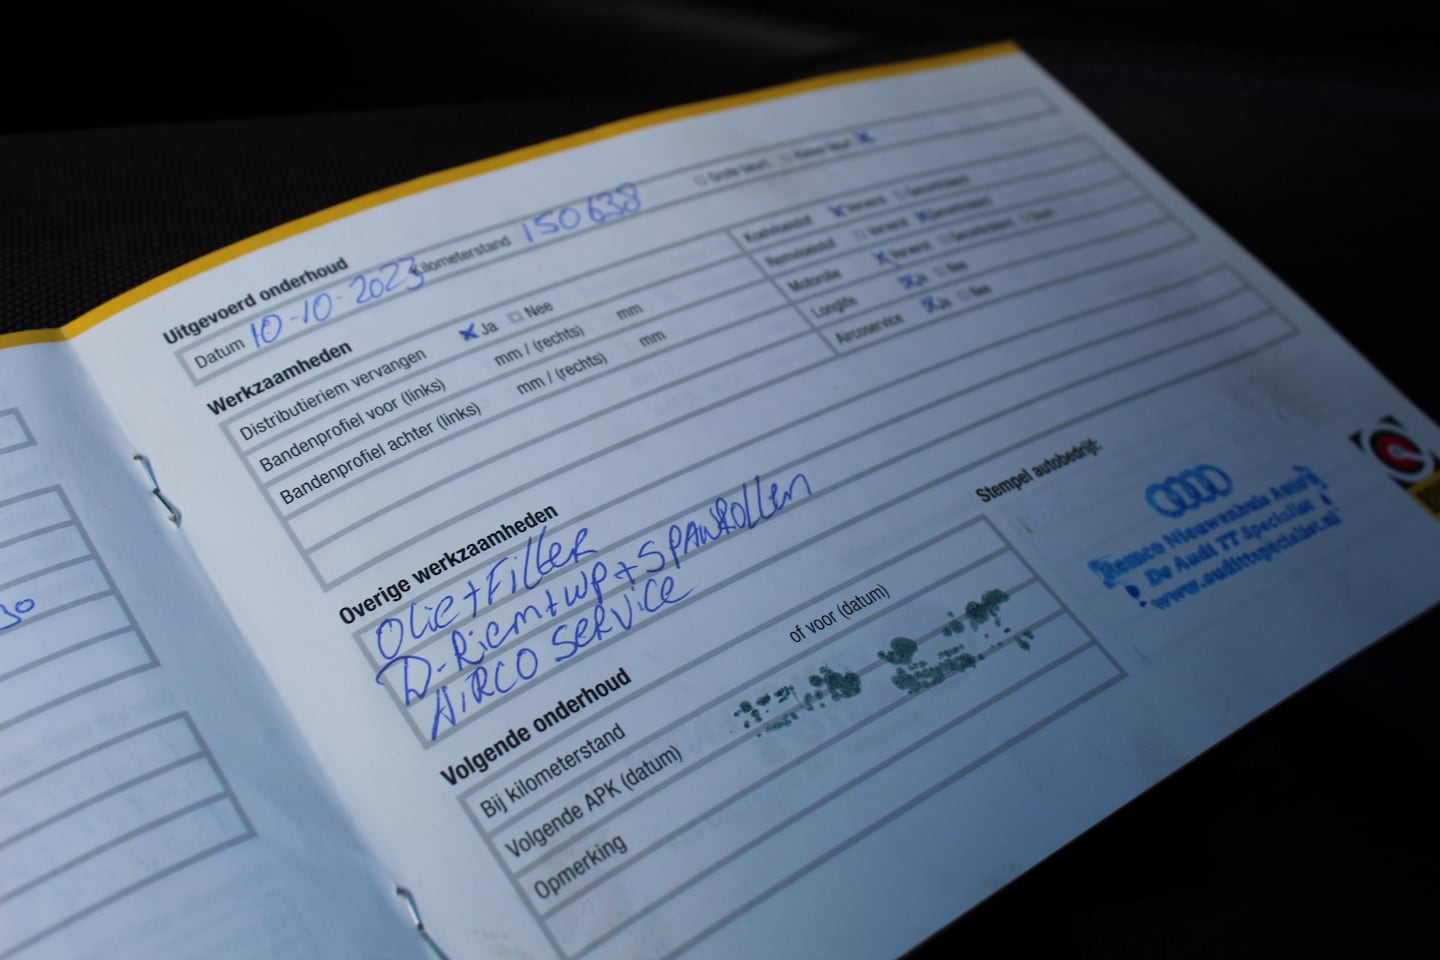 Uitgevoerd onderhoud
Datum 10-10-2023 Kilometerstand 150638 Grote beurt Kleine beurt
Werkzaamheden
Distributieriem vervangen Ja Nee
Bandenprofiel voor (links) mm / (rechts) mm
Bandenprofiel achter (links) mm / (rechts) mm
Koelvloeistof Ververst Gecontroleerd
Remvloeistof Ververst Gecontroleerd
Motorolie Ververst Gecontroleerd
Longlife Ja Nee
Aircoservice Ja Nee
Overige werkzaamheden
Olie + Filter
D-Riem + WP + SPANROllen
AiRCO SERViCE
Stempel autobedrijf:
Remco Nieuwenhuis Auto's
De Audi TT Specialist
www.audittspecialist.nl
Volgende onderhoud
Bij kilometerstand of voor (datum)
Volgende APK (datum)
Opmerking
30